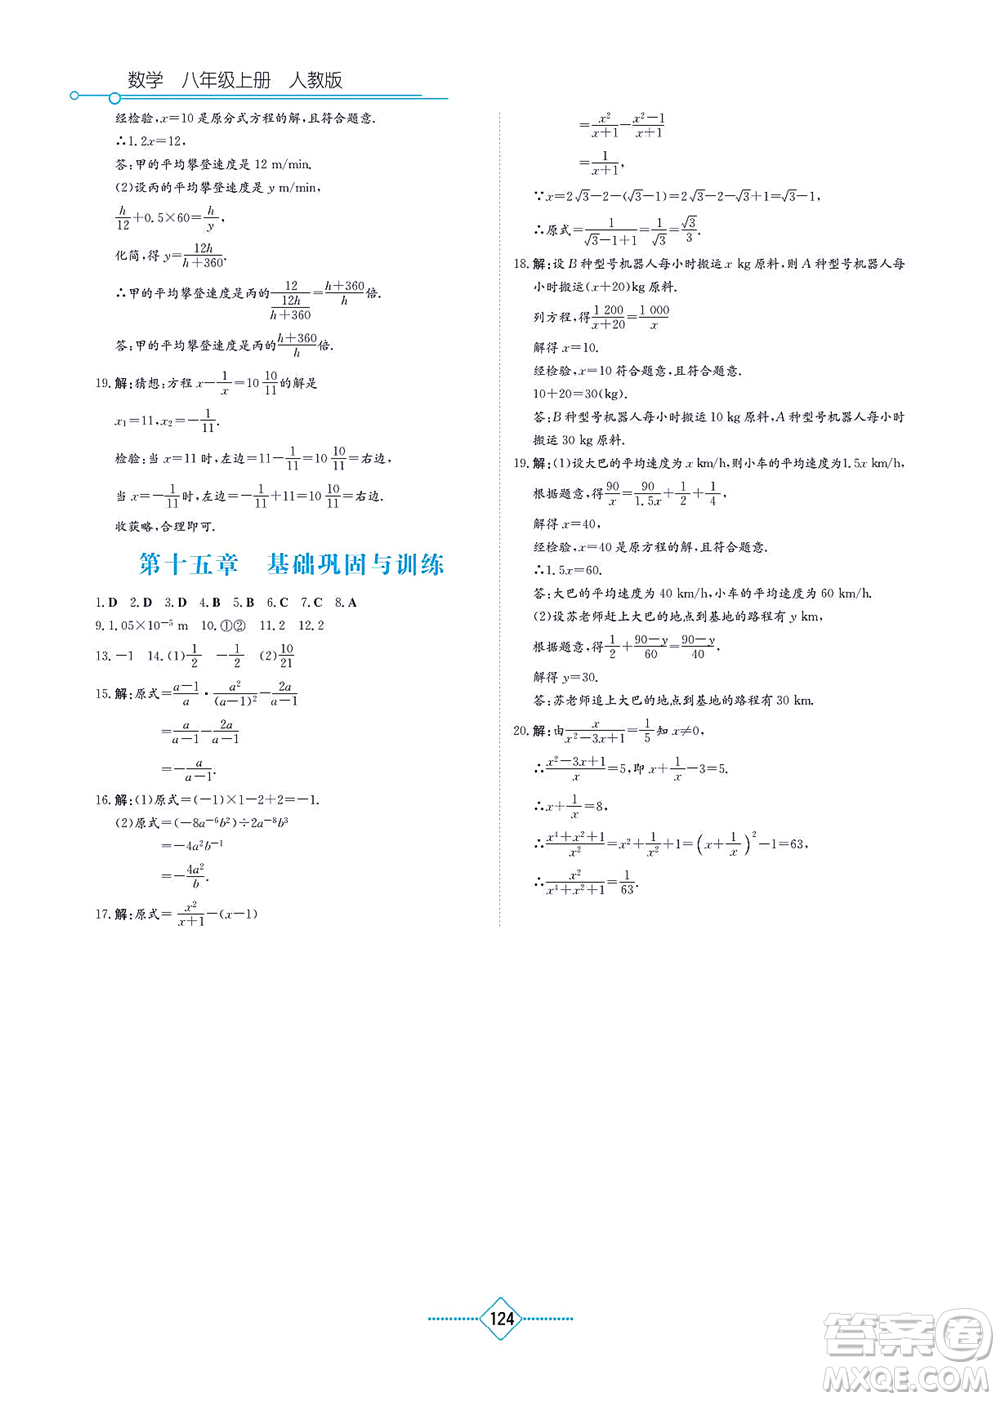 数学 八年级上册 人教版
经检验,x=10 是原分式方程的解,且符合题意.
∴1.2x=12,
答:甲的平均攀登速度是 12 m/min.
(2)设丙的平均攀登速度是 y m/min,
h/12+0.5×60=h/y,
化简,得 y=12h/(h+360).
∴甲的平均攀登速度是丙的 12/(12h/(h+360))=(h+360)/h 倍.
答:甲的平均攀登速度是丙的 (h+360)/h 倍.
19.解:猜想:方程 x-1/x=10 10/11 的解是
x₁=11,x₂=-1/11.
检验:当 x=11 时,左边=11-1/11=10 10/11=右边,
当 x=-1/11 时,左边=-1/11+11=10 10/11=右边.
收获略,合理即可.
第十五章 基础巩固与训练
1.D 2.D 3.D 4.B 5.B 6.C 7.C 8.A
9.1.05×10⁻⁵ m 10.①② 11.2 12.2
13.-1 14.(1)1/2 -1/2 (2)10/21
15.解:原式=(a-1)/a·a²/(a-1)²-2a/(a-1)
=a/(a-1)-2a/(a-1)
=-a/(a-1).
16.解:(1)原式=(-1)×1-2+2=-1.
(2)原式=(-8a⁻⁶b²)÷2a⁻⁸b³
=-4a²b⁻¹
=-4a²/b.
17.解:原式=x²/(x+1)-(x-1)
=x²/(x+1)-(x²-1)/(x+1)
=1/(x+1),
∵x=2√3-2-(√3-1)=2√3-2-√3+1=√3-1,
∴原式=1/(√3-1+1)=1/√3=√3/3.
18.解:设 B 种型号机器人每小时搬运 x kg 原料,则 A 种型号机器人每
小时搬运(x+20)kg 原料.
列方程,得 1 200/(x+20)=1 000/x
解得 x=10.
经检验,x=10 符合题意,且符合题意.
10+20=30(kg).
答:B 种型号机器人每小时搬运 10 kg 原料,A 种型号机器人每小时
搬运 30 kg 原料.
19.解:(1)设大巴的平均速度为 x km/h,则小车的平均速度为 1.5x km/h,
根据题意,得 90/x=90/1.5x+1/2+1/4,
解得 x=40,
经检验,x=40 是原方程的解,且符合题意.
∴1.5x=60.
答:大巴的平均速度为 40 km/h,小车的平均速度为 60 km/h.
(2)设苏老师赶上大巴的地点到基地的路程有 y km,
根据题意,得 1/2+(90-y)/60=(90-y)/40,
解得 y=30.
答:苏老师追上大巴的地点到基地的路程有 30 km.
20.解:由 x/(x²-3x+1)=1/5 知 x≠0,
∴(x²-3x+1)/x=5,即 x+1/x-3=5.
∴x+1/x=8,
∴(x⁴+x²+1)/x²=x²+1/x²+1=(x+1/x)²-1=63,
∴x²/(x⁴+x²+1)=1/63.
124
答案卷
MXQE.COM